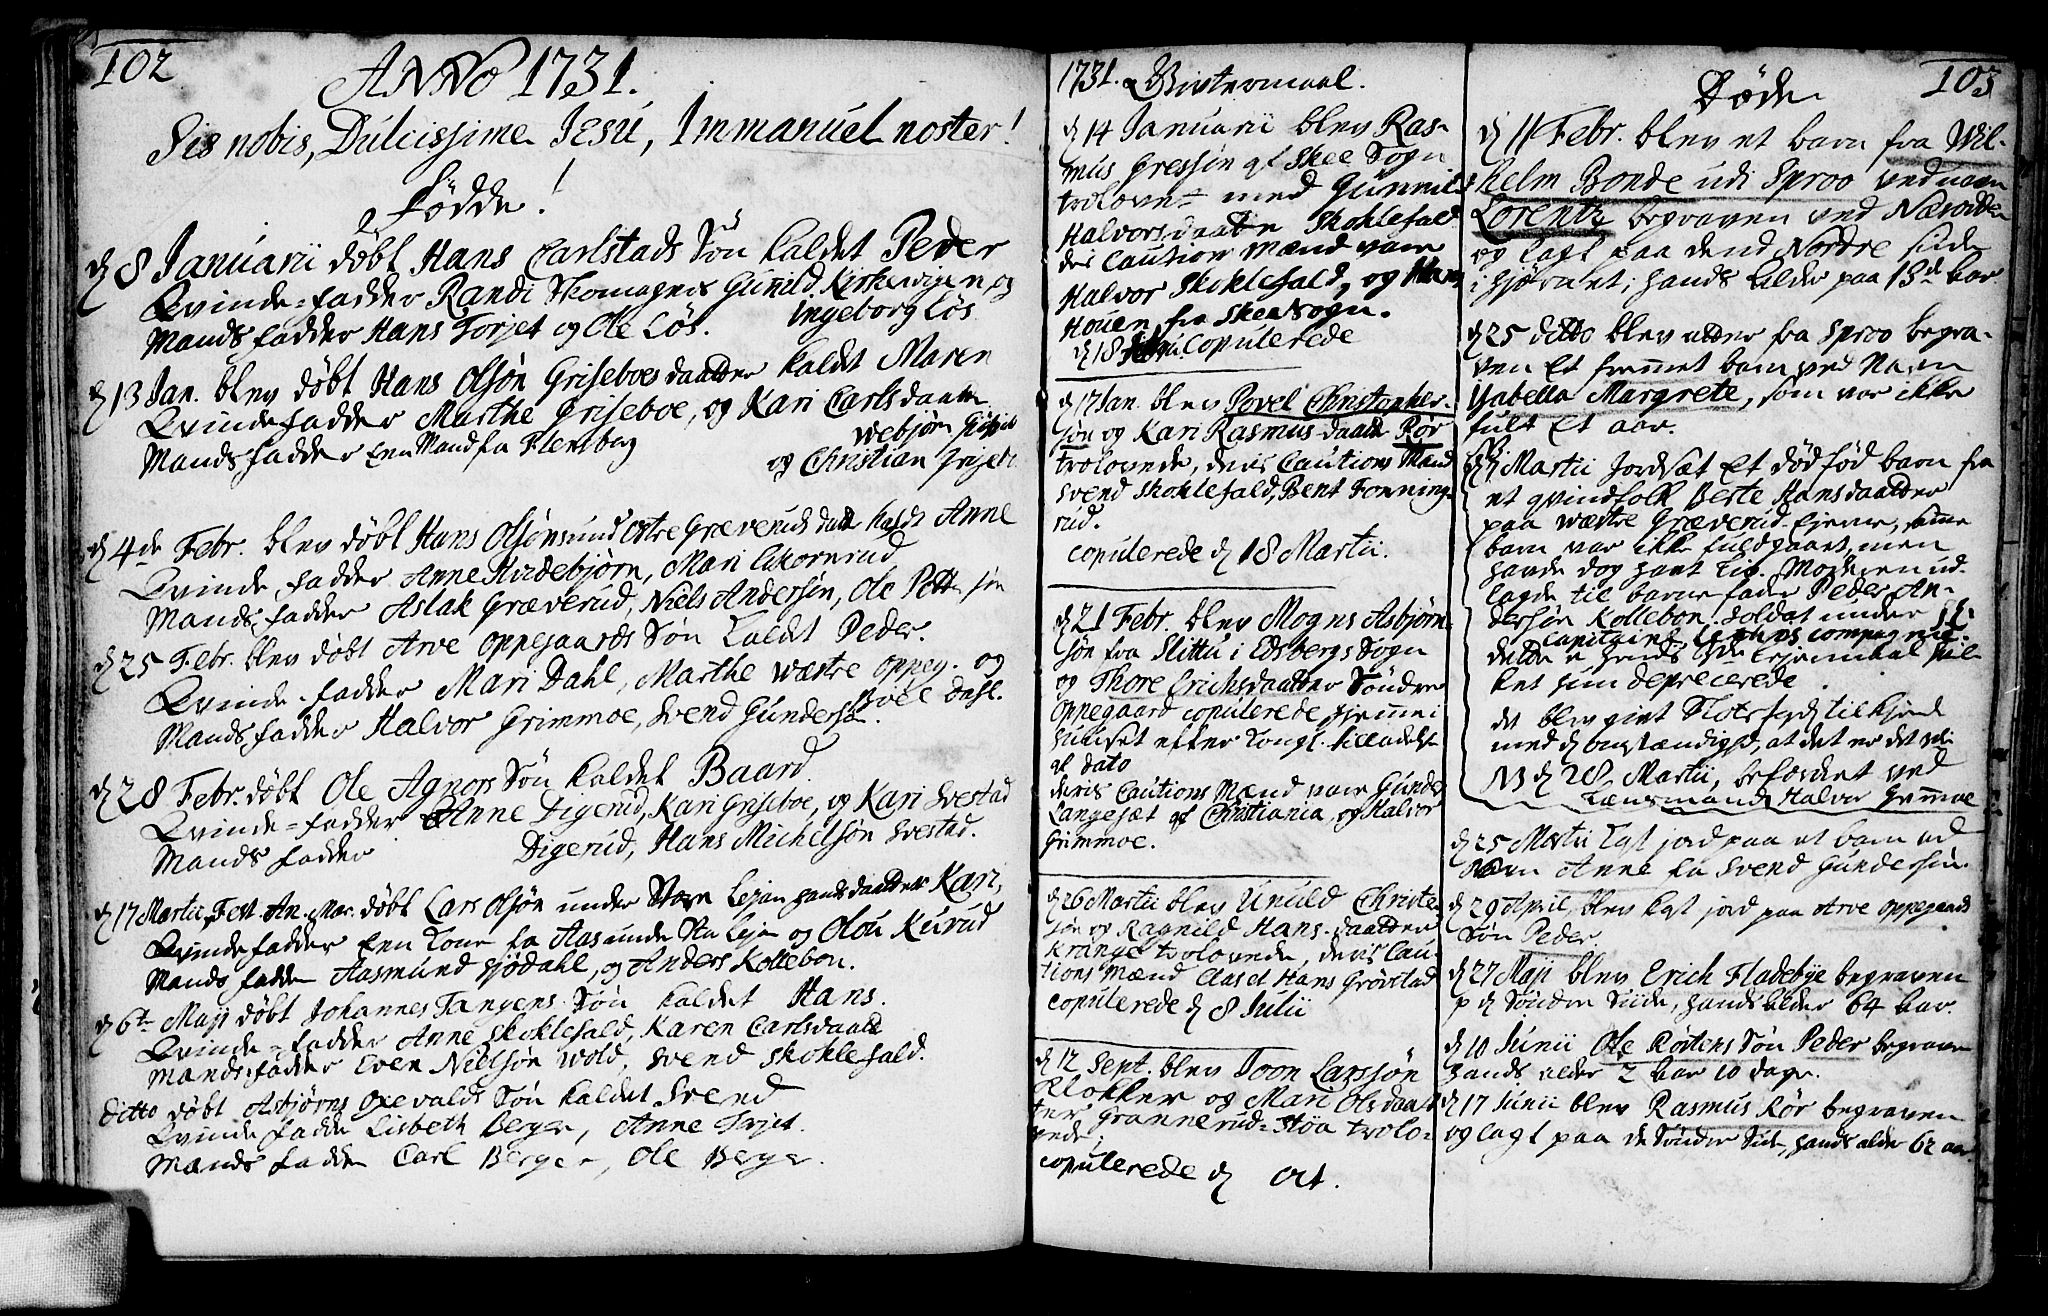 102
ANNO 1731.
Sis nobis, Dulcissime Jesu, Immanuel noster!
Fødde!
d 8 Januarii døbt Hans Carlstads Søn kaldet Peder
Qvinde-fadder Randi Skomagers Gunild Kirkevigen og
Mands fadder Hans Torjet og Ole Løs. Ingeborg Løs
d 13 Jan. blev døbt Hans Olsøn Griseboes daatter kaldet Maren
Qvindefadder Marthe Griseboe, og Kari Carlsdaatter
Mands fadder Een Mand fra Flensborg Webjørn
og Christian Griseboe
d 4de Febr. blev døbt Hans Olsøn østre Græveruds datter kaldt Anne
Qvinde fadder Anne Hvidebjørn, Mari Ekornrud
Mands fadder Aslak Græverud, Niels Andersøn, Ole Pettersøn
d 25 Febr. blev døbt Arve Oppegaards Søn kaldet Peder.
Qvinde-fadder Mari Dahl, Marthe wæstre oppeg. og
Mands fadder Halvor Grimmoe, Svend Gundersøn. Povel Dahl.
d 28 Febr. døbt Ole Agnors Søn kaldet Baard.
Qvinde-fadder Anne Digerud, Kari Griseboe, og Kari Svestad
Mands fadder Digerud, Hans Michelsøn Svestad.
d 17 Martii Fest. An. Mar. døbt Lars Olsøn under Støre Lejen hands daatter Kari,
Qvinde fadder Een Kone fra Aas unde Stu Lejen og Olou Kurud
Mands fadder Aasmund Sjødahl, og Anders Kollebon.
d 6te Maji døbt Johannes Tangens Søn kaldet Hans.
Qvinde-fadder Anne Skoklefald, Karen Carlsdaatter
Mandsfadder Even Nielsøn Wold, Svend Skoklefald.
ditto døbt Asbjørns Oxevalds Søn kaldet Svend
Qvinde fadder Lisbeth Berger, Anne Torjet.
Mands fadder Carl Berger, Ole Berger.
1731. Vistermaal.
d 14 Januarii blev Ras-
mus Gressøn af Skee Sogn
trolovet med Gunnil-
Halvorsdaatter Skoklefald
der Caution Mænd vare
Halvor Skoklefald, og Hans
Houen fra Skee sogn.
d 18 copulerede
d 17 Jan. blev Povel Christopher-
søn og Kari Rasmus-daatter Rør
trolovede, deris Cautions Mænd
Svend Skoklefald, Bent Fonning-
rud.
copulerede d 18 Martii.
d 21 Febr. blev Mogns Asbjørn-
søn fra Slittu i Edsbergs Sogn
og Thore Erichsdaatter Søndre
Oppegaard copulerede hjemme i
huuset efter Kongl. tilladelse
af dato
deris Cautions Mænd vare Gunder
Langesæt af Christiania, og Halvor
Grimmoe.
d 26 Martii blev Unuld Christe-
søn og Ragnild Hans-daatter
Krange trolovede, deris Cau-
tions Mænd Clas et Hans Grøvstad
copulerede d 8 Julii
d 12 Sept. blev Joon Larssøn
Klokker og Mari Olsdaat-
ter Grannerud-Støa trolo-
vede,
copulerede d Oct.
Døde 103
d 11 Febr. blev et barn fra Wil-
helm Bonde udi Sproo ved navn
Lorentz begraven ved Næsodden
og lagt paa dend Nordre side
i hjørnet; hands alder paa 13de aar
d 25 ditto blev atter fra Sproo begra-
ven Et fremmet barn ved Navn
Ysabella Margrete, som var ikke
fult Et aar.
Martii Jordsat Et død fød barn fra
et qvindfolk Berte Hansdaatter
paa wæstre Græverud-Ejerne, samme
barn var ikke fuldgaaet, men
havde dog havt Liv. Moderen ud-
lagde til barne fader Peder An-
dersøn Kollebon. Soldat under
Capitaine compagnie.
dette er hends Lejermaal hvil-
ket hun deprecerede
det blev givet Slots
med d omstændighed, at det er det
d 28 Martii, befordret ved
Lænsmand Halvor Grimmoe
d 25 Martii Kast jord paa et barn ved
Navn Anne fra Svend Gundersøn.
d 29 April, blev Kast jord paa Arve oppegaards
Søn Peder.
d 27 Maji blev Erich Fladebye begraven
p d Søndre Siide, hands alder 64 aar.
d 10 Junii Ole Røstens Søn Peder begraven
hands alder 2 aar 10 dage.
d 17 Junii blev Rasmus Rør begraven
og lagt paa de Sønder Side, hands alder 62 aar